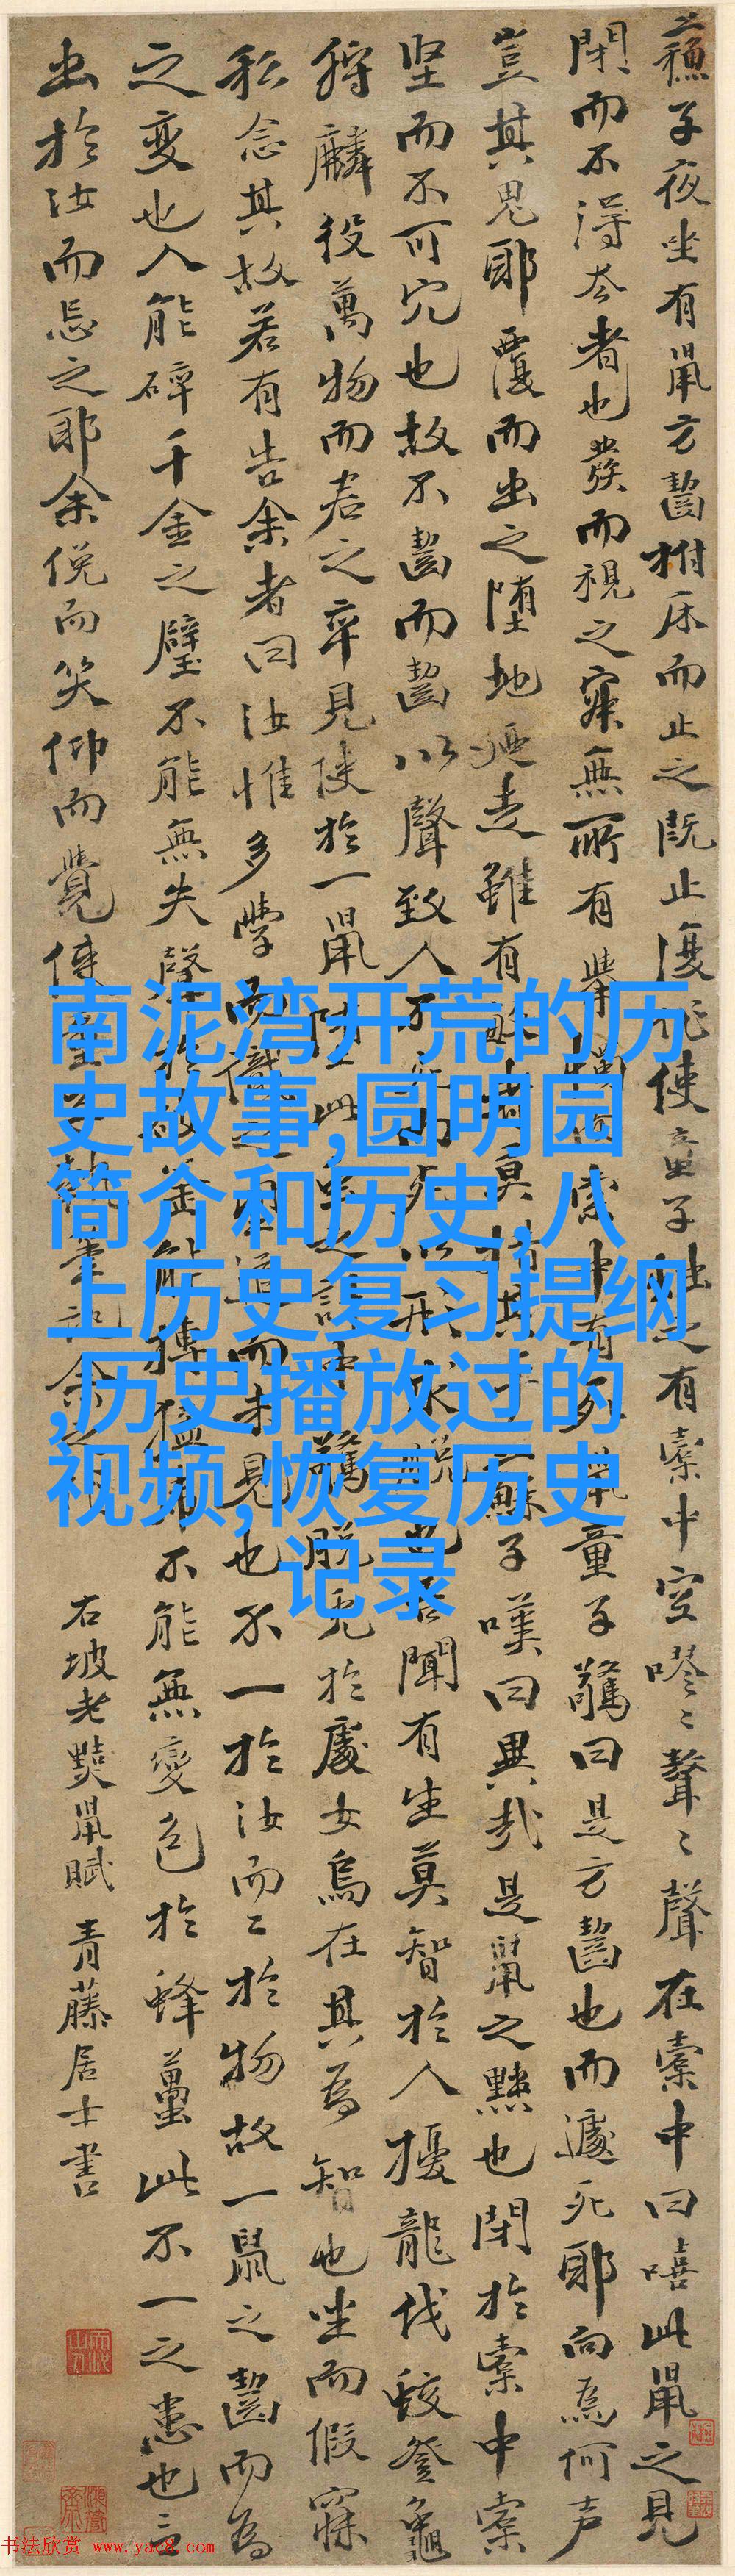 蘇子夜坐有鼠方齧拊床而止之既止復作使童子燭之有橐中空嘐〻聱〻聲在橐中曰嘻此鼠之見
閉而不得去者也發而視之寂無所有舉燭而索中有死鼠童子驚曰是方齧也而遽死耶向為何声
豈其鬼耶覆而出之墮地廼走雖有敏者莫措其手蘇子嘆曰異哉是鼠之黠也閉於橐中橐
坚而不可穴也故不齧而齧以聲致人不死而死以形求脱也吾聞有生莫智於人擾龍伐蛟登龜
狩麟役萬物而君之卒見使於一鼠墮此虫之計中驚脱兔於處女烏在其為智也坐而假寐
私念其故若有告余者曰汝惟多學而識之望道而未見也不一於汝而二於物故一鼠之齧而為
之變也人能碎千金之璧不能無失聲於破釜能搏猛虎不能無變色於蜂蠆此不一之患也言
出於汝而忘之耶余俛而笑仰而覺使童子執筆記余之作
右坡老黠鼠賦 青藤居士書
南泥湾开荒的历
史故事,圆明园
简介和历史,八
上历史复习提纲
,历史播放过的
视频,恢复历史
记录
书法欣赏 www.yac8.com